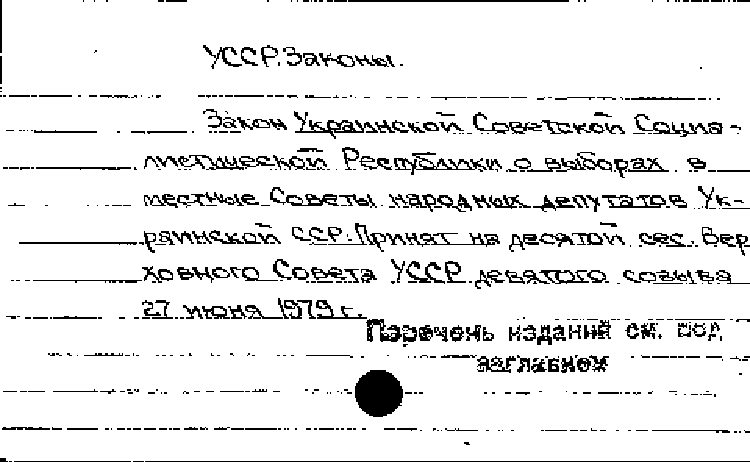 УССР. Законы.
Закон Украинской Советской Социа-
листической Республики о выборах в
местные Советы народных депутатов Ук-
раинской ССР. Принят на десятой сес. Вер
ховного Совета УССР девятого созыва
27 июня 1979 г.
Перечень изданий см. под
заглавием